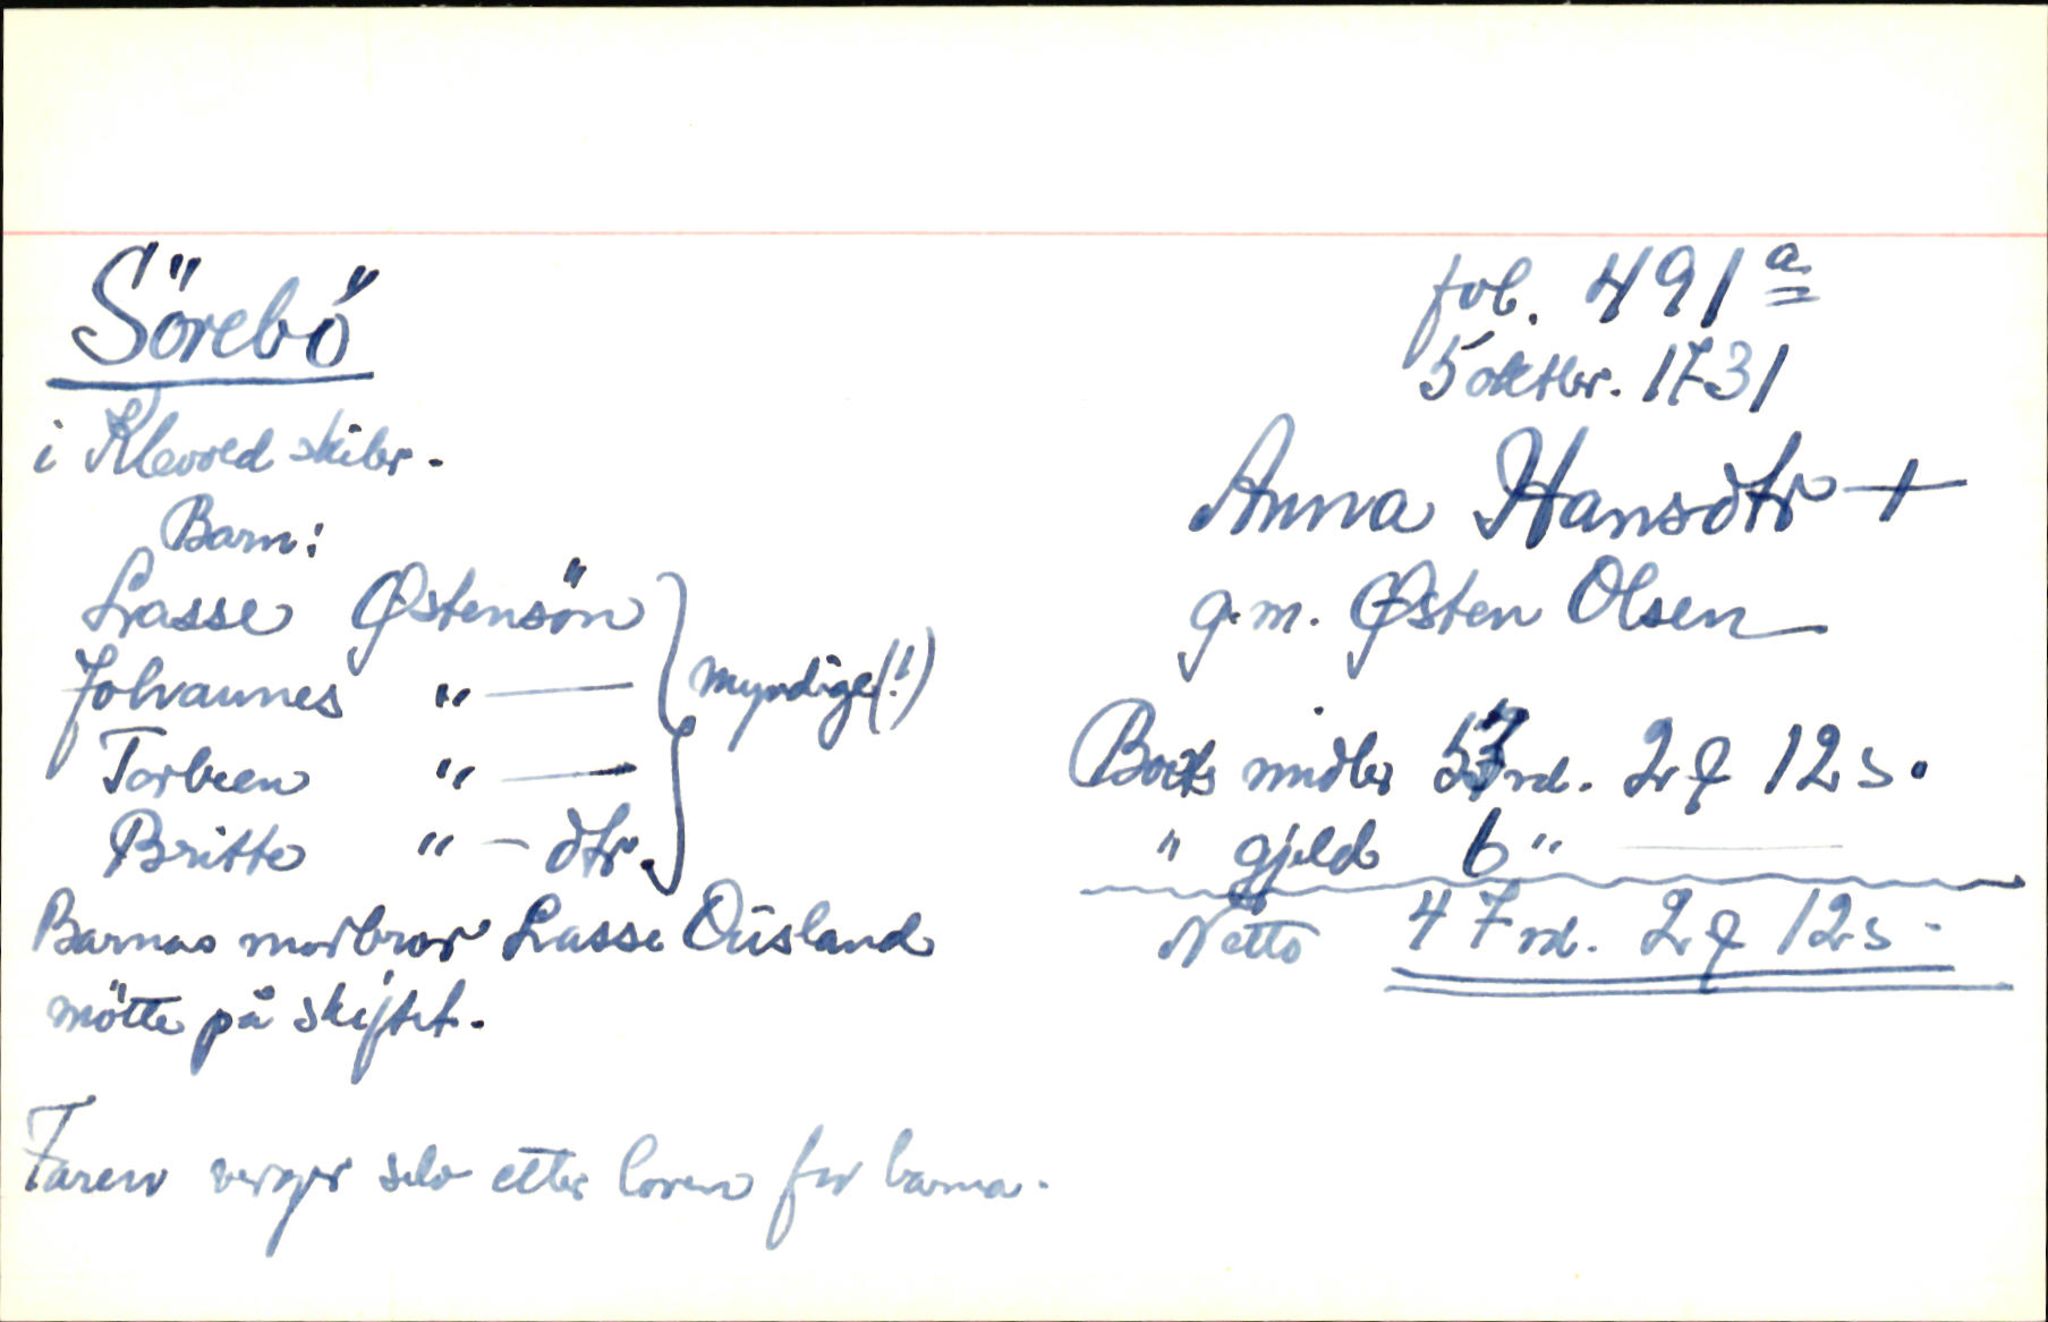 Sörebö
i Klevold skibr.
Barn:
Lasse Østensön
Johannes " —
Torbien " —
Britte " — dtr.
myndige (!)
Barnas morbror Lasse Ousland
mötte på skiftet.
Faren verger selv etter loven for barna.
fol. 491 a
5 oktbr. 1731
Anna Hansdtr +
g.m. Østen Olsen
Boets midler 53 rd. 2 q 12 s.
" gjeld 6 " —
Netto 47 rd. 2 q 12 s.